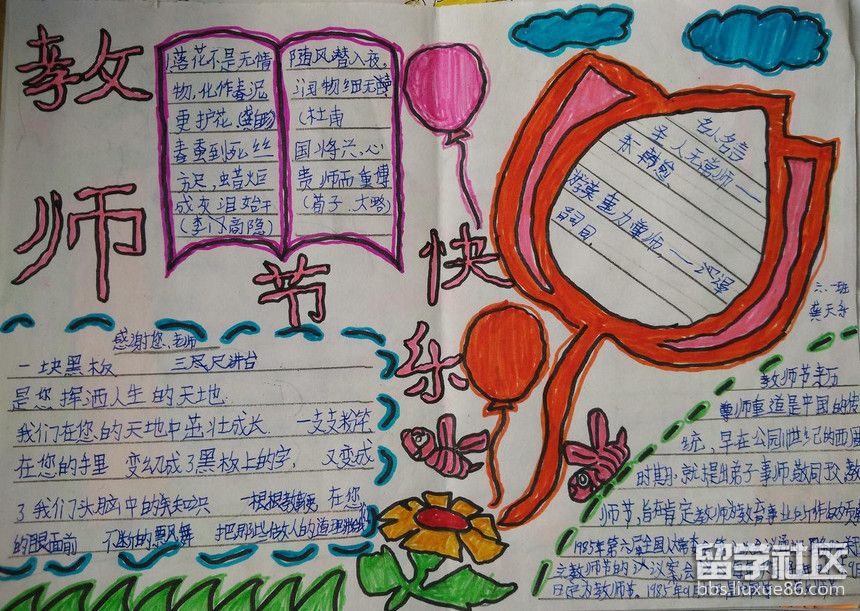 教师节快乐
落花不是无情
物,化作春泥
更护花.(龚自珍)
春蚕到死丝
方尽,蜡炬
成灰泪始干
(李商隐)
随风潜入夜,
润物细无声
(杜甫
国将兴,心
贵师而重傅
(荀子.大略)
名人名言
圣人无常师——
韩愈
感谢您,老师
一块黑板 三尺尺讲台
是您挥洒人生的天地.
我们在您的天地中茁壮成长 一支支粉笔
在您的手里 变幻成了黑板上的字, 又变成
了我们头脑中的知识 一根根教鞭 在您
的眼面前 不断的飘风舞
六.一班
龚天乐
教师节来历
尊师重道是中国的传
统,早在公园11世纪的西周
时期,就提出弟子事师,敬同
师节,旨在肯定教师为教育事业所作的贡
1985年第六届全国人
立教师节的议案
日定为教师节.1985年
留学社区
bbs.liuxue86.com